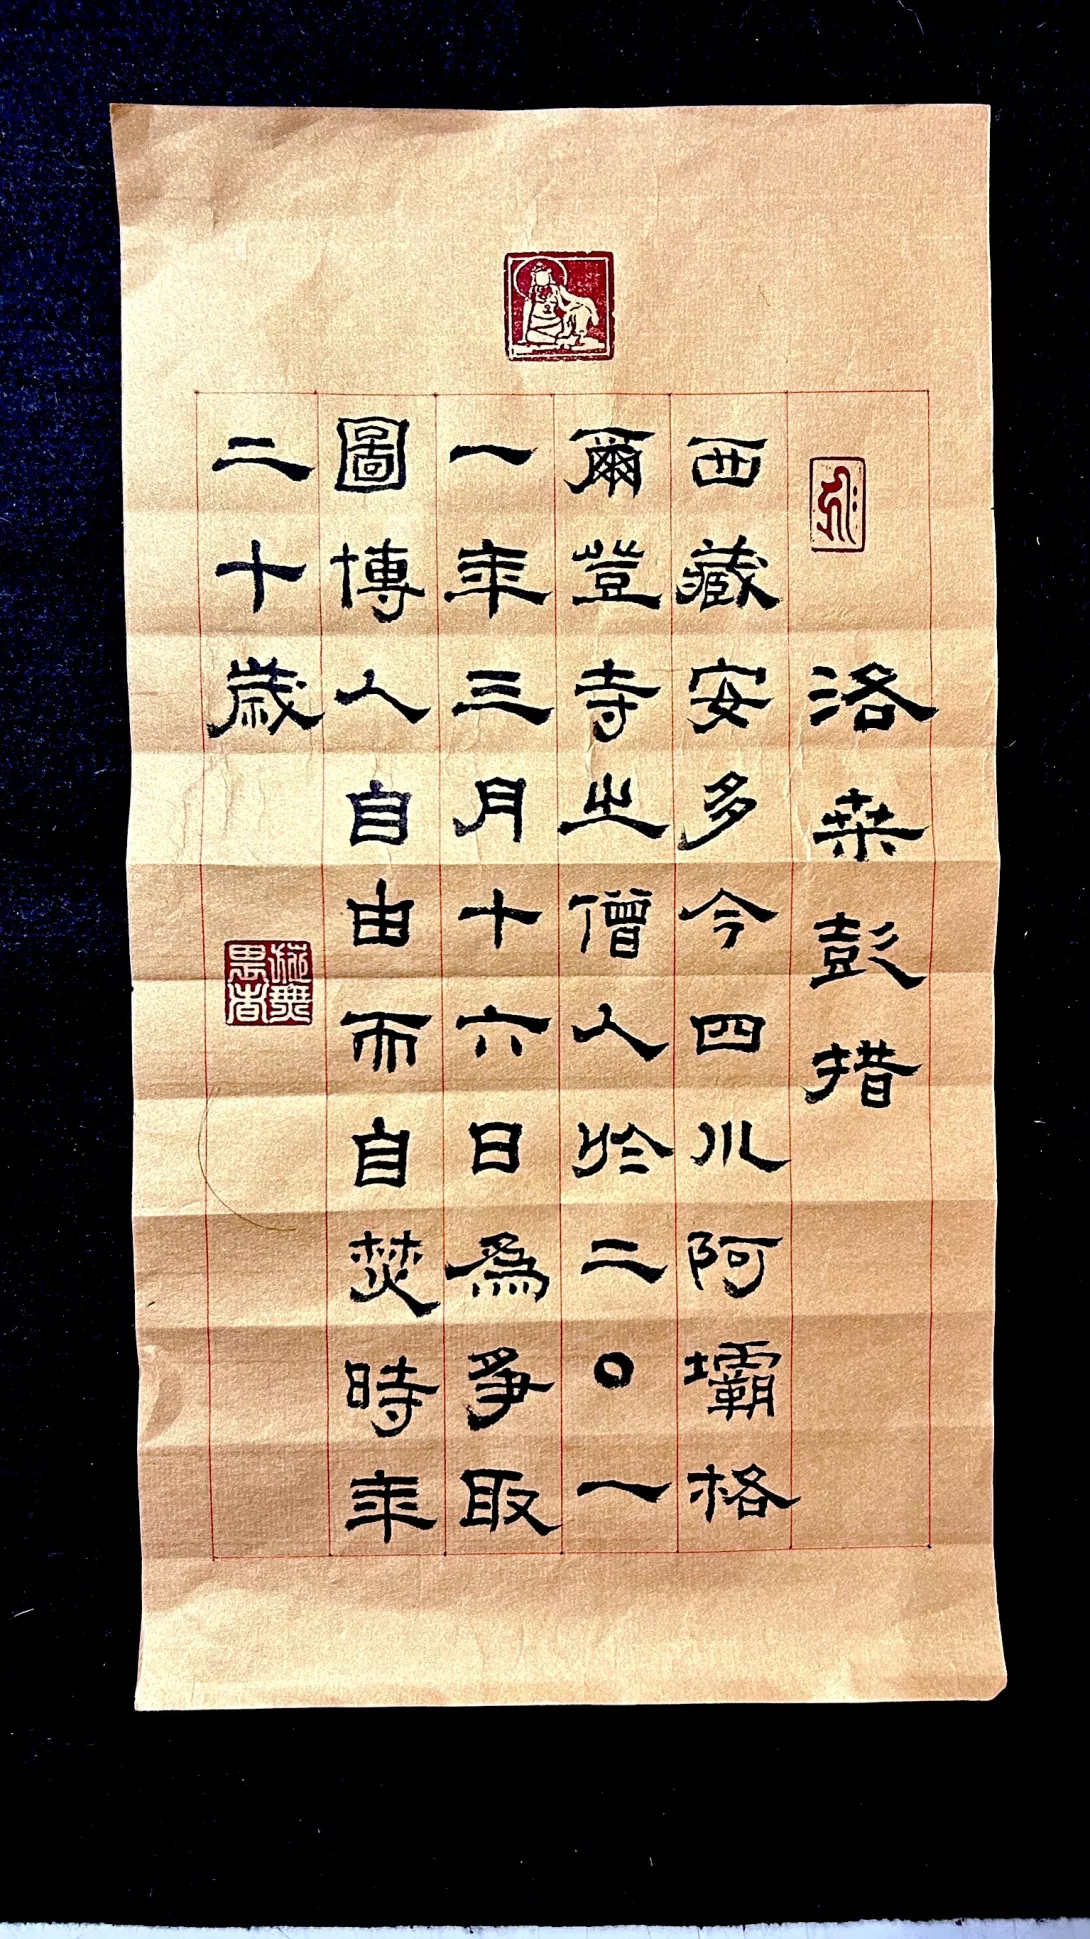 洛桑彭措
西藏安多今四川阿壩格
爾登寺之僧人於二〇一
一年三月十六日為爭取
圖博人自由而自焚時年
二十歲